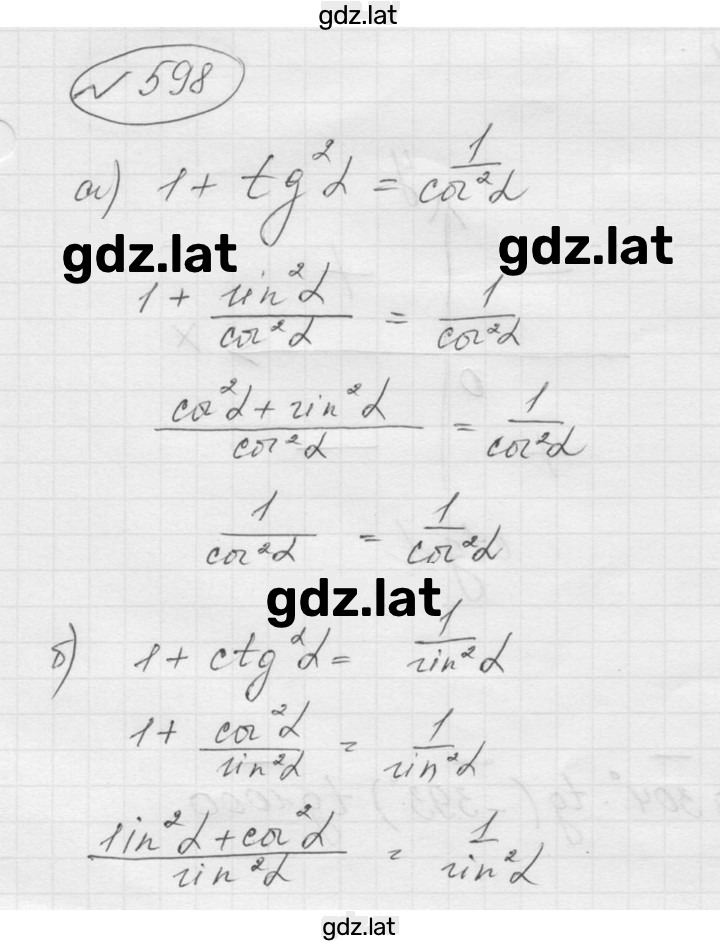 gdz.lat
№ 598
а) 1 + tg²α = 1/cos²α
gdz.lat
gdz.lat
1 + sin²α/cos²α = 1/cos²α
(cos²α + sin²α)/cos²α = 1/cos²α
1/cos²α = 1/cos²α
gdz.lat
б) 1 + ctg²α = 1/sin²α
1 + cos²α/sin²α = 1/sin²α
(sin²α + cos²α)/sin²α = 1/sin²α
gdz.lat